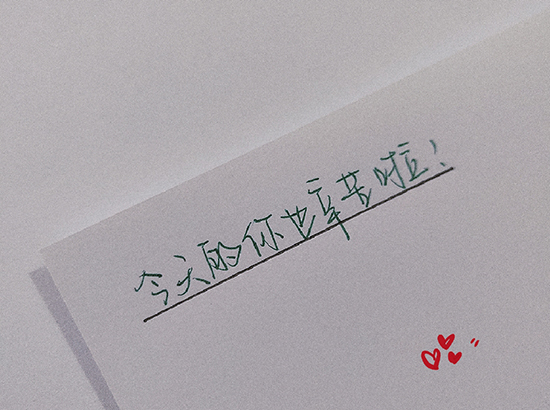 今天的你也辛苦啦!